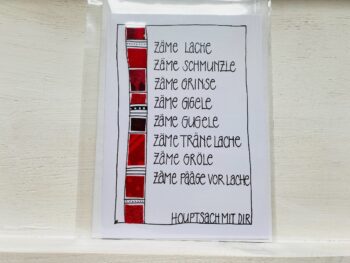 ZÄME LACHE
ZÄME SCHMUNZLE
ZÄME GRINSE
ZÄME GIGELE
ZÄME GUGELE
ZÄME TRÄNE LACHE
ZÄME GRÖLE
ZÄME PÄÄGE VOR LACHE
HOUPTSACH MIT DIR